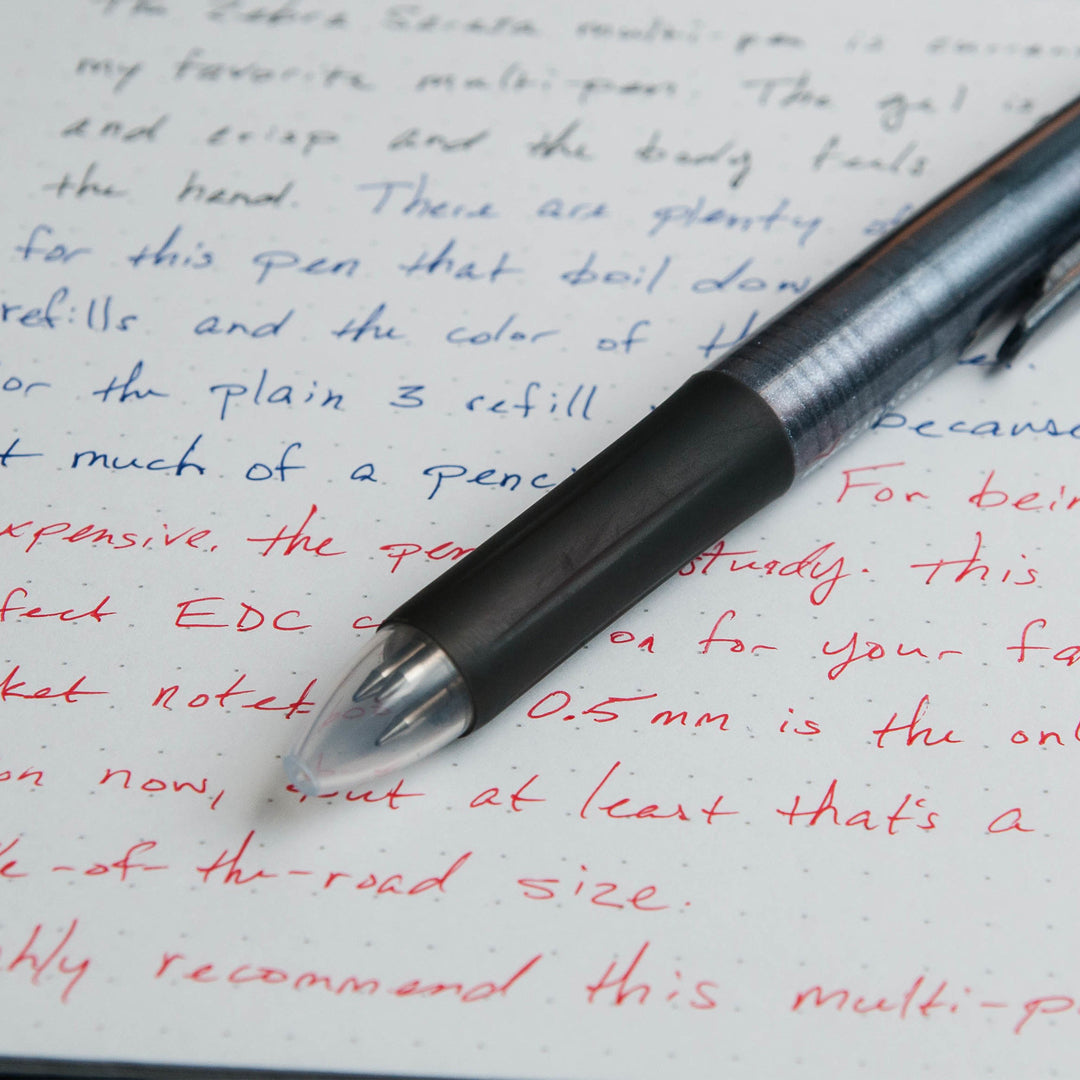 The Zebra Sarasa multi-pen is
my favorite multi-pen. The gel is
and crisp and the body feels
the hand. There are plenty of
for this pen that boil down
refills and the color of
or the plain 3 refill because
much of a
For
expensive, the pen sturdy. This
EDC on for your
0.5 mm is the
on now, but at least that's a
-of-the-road size.
recommend this multi-